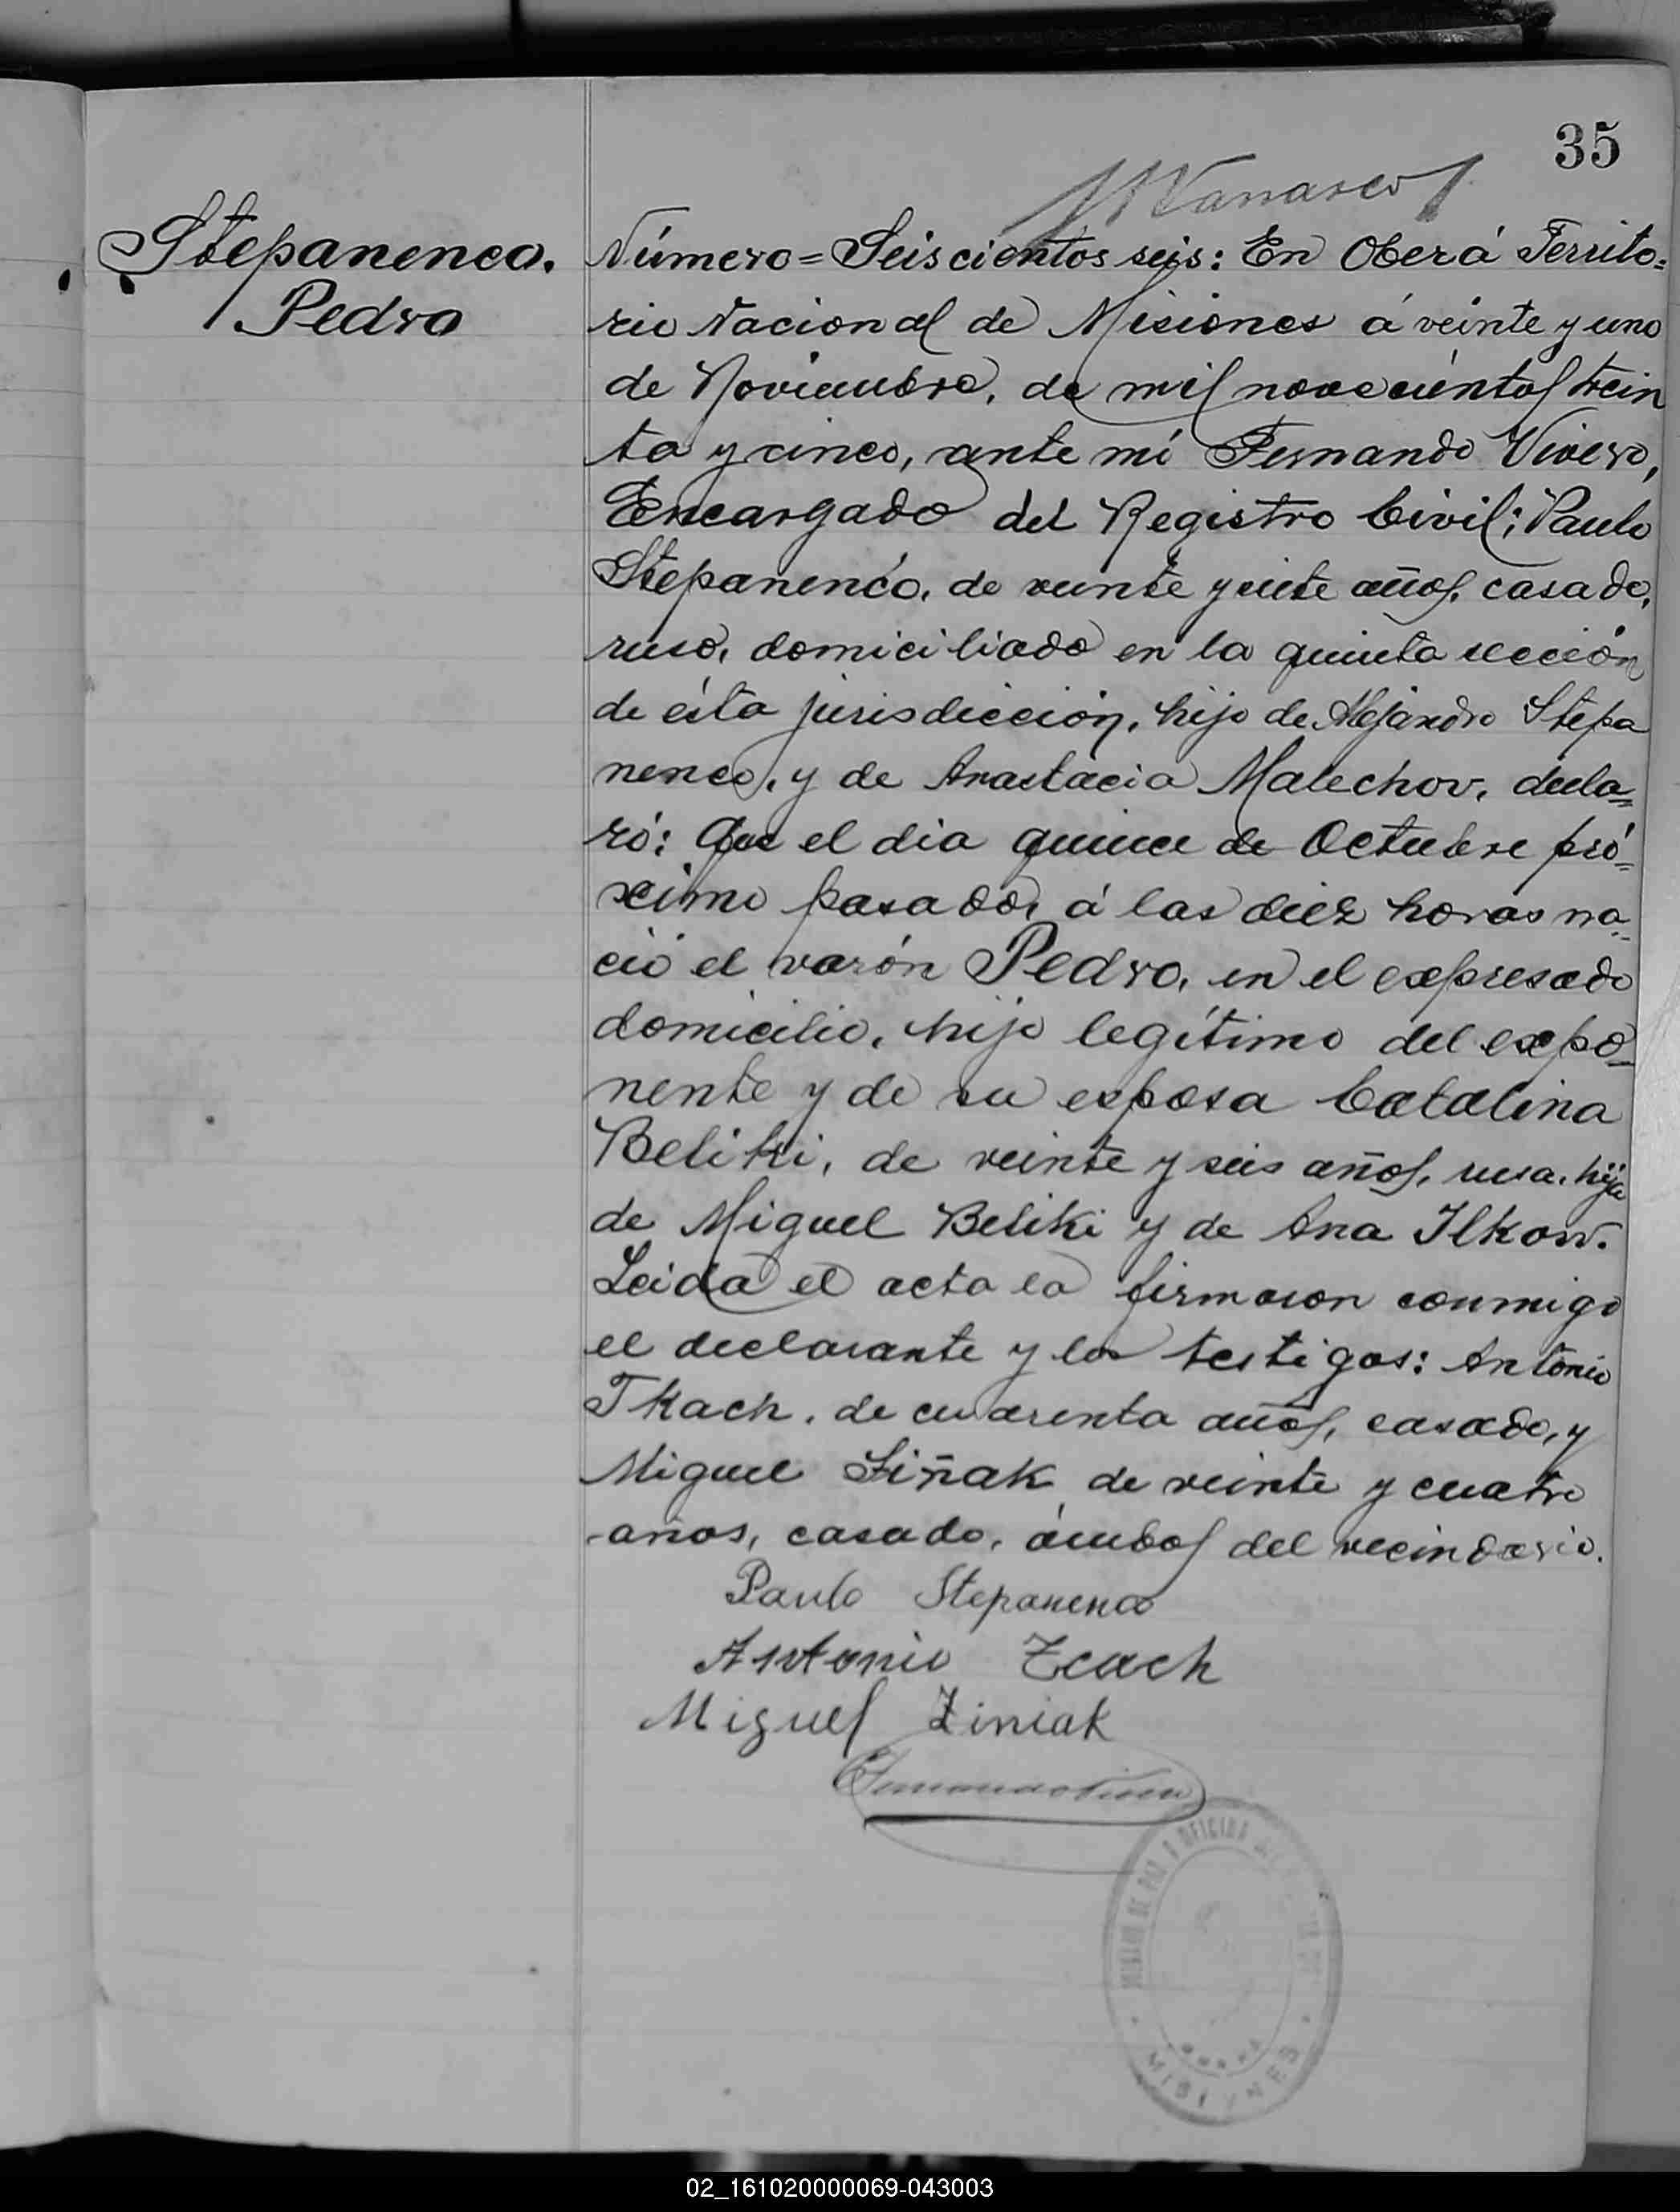 35
Stepanenco.
Pedro
Número = Seiscientos seis: En Oberá Territo=
rio Nacional de Misiones á veinte y uno
de Noviembre, de mil novecientos trein
ta y cinco, ante mí Fernando Vivero,
Encargado del Registro Civil; Paulo
Stepanenco, de veinte y siete años, casado,
ruso, domiciliado en la quinta sección
de ésta jurisdicción, hijo de Alejandro Stepa
nenco, y de Anastacia Malechov, decla=
ró: Que el dia quince de Octubre pró=
ximo pasado, á las diez horas na=
ció el varón Pedro, en el expresado
domicilio, hijo legítimo del expo=
nente y de su esposa Catalina
Beliki, de veinte y seis años, rusa, hija
de Miguel Beliki y de Ana Ilkow.
Leida el acta la firmaron conmigo
el declarante y los testigos: Antonio
Tkach, de cuarenta años, casado, y
Miguel Ziñak, de veinte y cuatro
años, casado, ámbos del vecindario.
Paulo Stepanenco
Antonio Tcach
Miguel Ziniak
Fernando Vivero
OFICINA
MISIONES
02_161020000069-043003